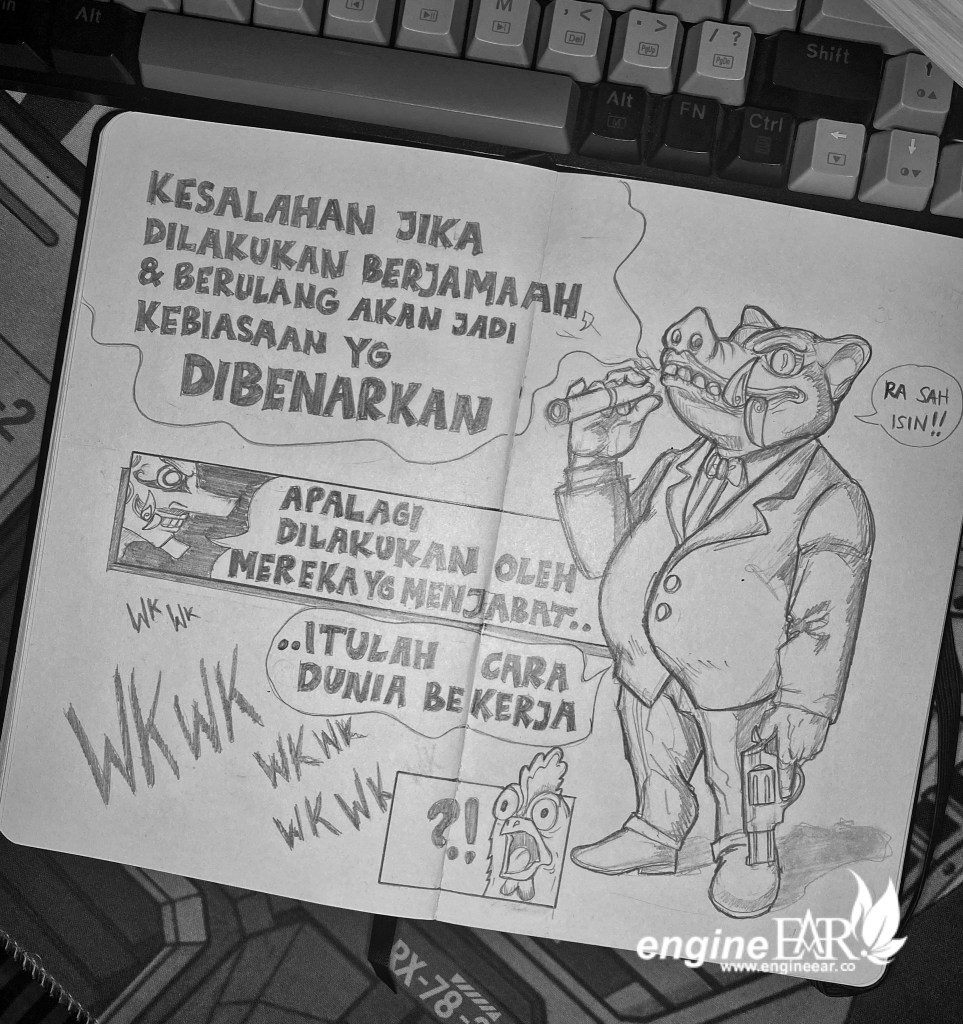 Alt
M
, <
Del
. >
PgUp
/ ?
PgDn
Shift
Alt
FN
Ctrl
KESALAHAN JIKA
DILAKUKAN BERJAMAAH,
& BERULANG AKAN JADI
KEBIASAAN YG
DIBENARKAN
RA SAH
ISIN!!
APALAGI
DILAKUKAN OLEH
MEREKA YG MENJABAT..
..ITULAH CARA
DUNIA BEKERJA
WK WK
WK WK
WK WK
WK WK
?!
RX-78-2
engine EAR
www.engineear.co